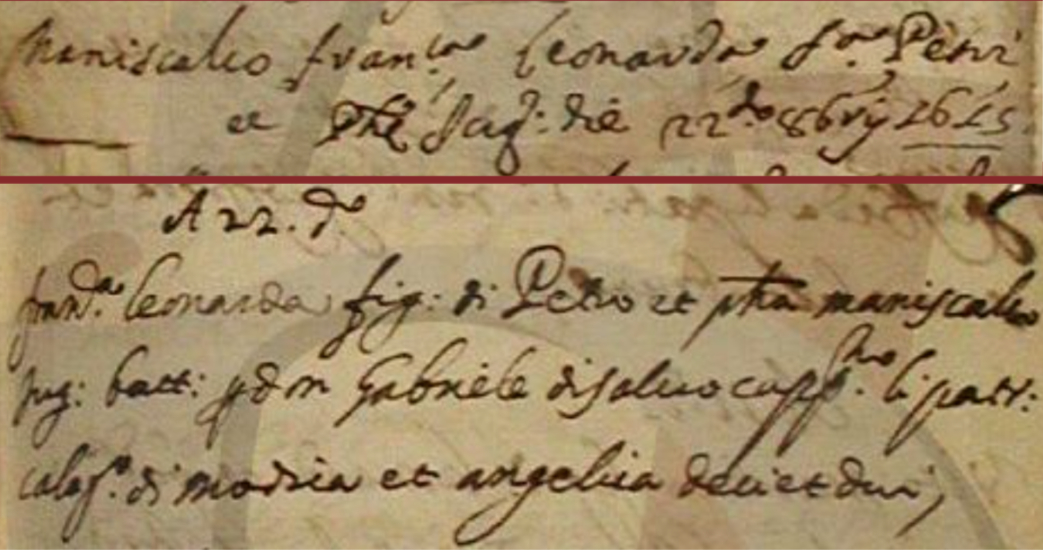 Maniscalco Fran.ca Leonarda f.a Petri
et Ph.a Jug: die 22.do 8bris 1615
A 22. d.o
fran.ca leonarda fig: di Petro et pha maniscalco
jug: batt: p don Gabriele disalvo capp.no li patr:
calog.o di modica et angelica